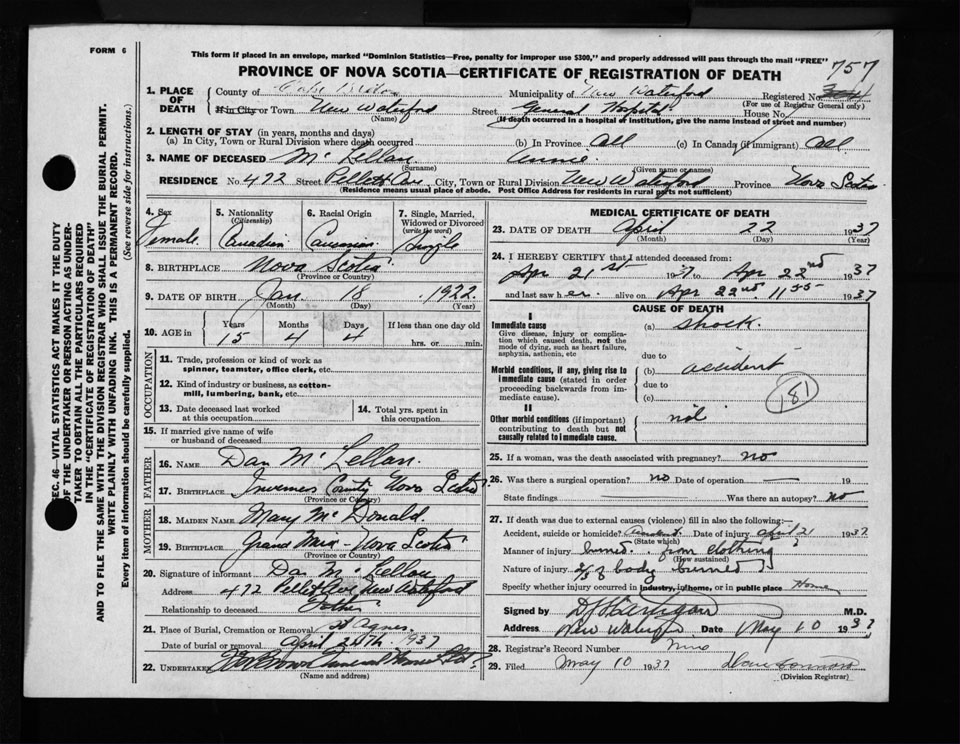 FORM 6
This form if placed in an envelope, marked "Dominion Statistics—Free, penalty for improper use $300," and properly addressed will pass through the mail "FREE"
757
PROVINCE OF NOVA SCOTIA—CERTIFICATE OF REGISTRATION OF DEATH
1. PLACE OF DEATH
County of Cape Breton Municipality of New Waterford Registered No.
(For use of Registrar General only)
If in City or Town New Waterford Street General Hospital House No.
(Name) (If death occurred in a hospital of institution, give the name instead of street and number)
2. LENGTH OF STAY (in years, months and days)
(a) In City, Town or Rural Division where death occurred (b) In Province All (c) In Canada (if immigrant) All
3. NAME OF DECEASED McLellan Annie.
(Surname) (Given name or names)
RESIDENCE No. 472 Street Pellett Ave City, Town or Rural Division New Waterford Province Nova Scotia
(Residence means usual place of abode. Post Office Address for residents in rural parts not sufficient)
4. Sex Female.
5. Nationality (Citizenship) Canadian
6. Racial Origin Caucasian
7. Single, Married, Widowed or Divorced (write the word) Single
8. BIRTHPLACE Nova Scotia
(Province or Country)
9. DATE OF BIRTH Jan. 18 1922
(Month) (Day) (Year)
10. AGE in Years Months Days If less than one day old
15 4 4 hrs. or min.
OCCUPATION
11. Trade, profession or kind of work as spinner, teamster, office clerk, etc.
12. Kind of industry or business, as cotton-mill, lumbering, bank, etc.
13. Date deceased last worked at this occupation
14. Total yrs. spent in this occupation
15. If married give name of wife or husband of deceased
FATHER
16. NAME Dan McLellan.
17. BIRTHPLACE Inverness County Nova Scotia
(Province or Country)
MOTHER
18. MAIDEN NAME Mary McDonald.
19. BIRTHPLACE Grand Mira - Nova Scotia
(Province or Country)
20. Signature of informant Dan McLellan
Address 472 Pellett Ave New Waterford
Relationship to deceased Father
21. Place of Burial, Cremation or Removal St Agnes.
Date of burial or removal April 24th 1937
22. UNDERTAKER Funeral Home
(Name and address)
MEDICAL CERTIFICATE OF DEATH
23. DATE OF DEATH April 22 1937
(Month) (Day) (Year)
24. I HEREBY CERTIFY that I attended deceased from:
Apr 21st 1937 to Apr 22nd 1937
and last saw her alive on Apr 22nd. 11 55 1937
CAUSE OF DEATH
I
Immediate cause
Give disease, injury or complication which caused death, not the mode of dying, such as heart failure, asphyxia, asthenia, etc
(a) shock.
due to
Morbid conditions, if any, giving rise to immediate cause (stated in order proceeding backwards from immediate cause).
(b) accident
due to
(c)
181
II
Other morbid conditions (if important) contributing to death but not causally related to immediate cause.
nil
25. If a woman, was the death associated with pregnancy? no
26. Was there a surgical operation? no Date of operation — 19
State findings Was there an autopsy? no
27. If death was due to external causes (violence) fill in also the following:
Accident, suicide or homicide? Accident. Date of injury April 21 1937
(State which)
Manner of injury burned.. from clothing
(How sustained)
Nature of injury 2/3 of body burned
Specify whether injury occurred in industry, in home, or in public place Home
Signed by M.D.
Address New Waterford Date May 10 1937
28. Registrar's Record Number
29. Filed May 10 1937
(Division Registrar)
SEC. 46—VITAL STATISTICS ACT MAKES IT THE DUTY
OF THE UNDERTAKER OR PERSON ACTING AS UNDERTAKER
TO OBTAIN ALL THE PARTICULARS REQUIRED
IN THE "CERTIFICATE OF REGISTRATION OF DEATH"
AND TO FILE THE SAME WITH THE DIVISION REGISTRAR WHO SHALL ISSUE THE BURIAL PERMIT.
WRITE PLAINLY WITH UNFADING INK. THIS IS A PERMANENT RECORD.
Every item of information should be carefully supplied. (See reverse side for instructions.)